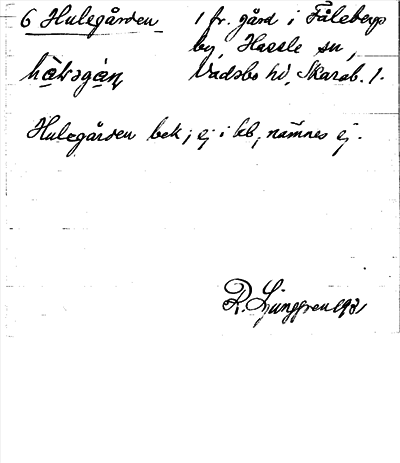 6 Hulegården 1 fr. gård i Fålebergs
by, Hassle sn,
Vadsbo hd, Skarab. l.
Hulegården bek; ej i kb, nämnes ej.
R. Ljunggren 1931